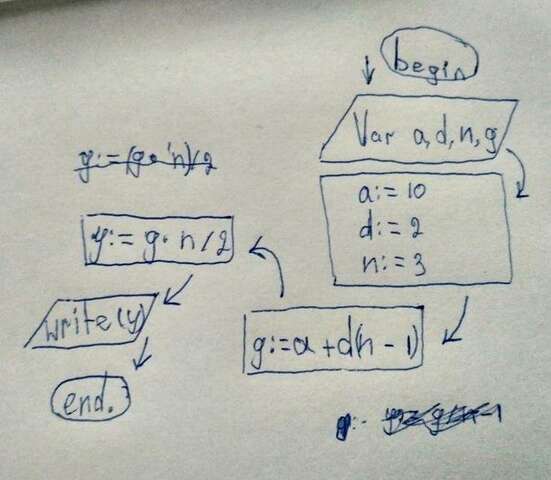 begin
Var a, d, n, g
a:= 10
d:= 2
n:= 3
g:=a+d(n-1)
y:=(g·n)/2
y:= g·n/2
write(y)
end.